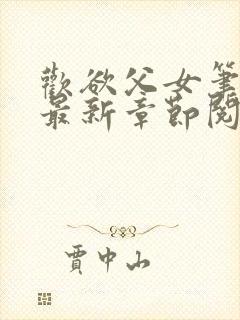 歡欲父女筆
最新章節閱
賈中山